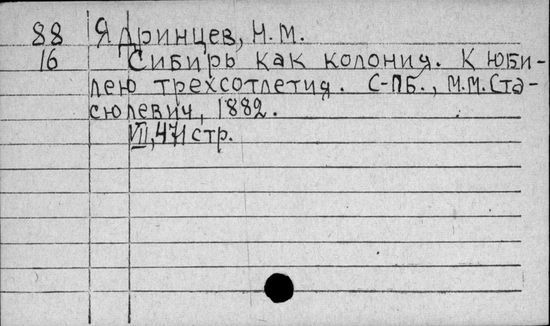 88 Ядринцев, Н.М.
16 Сибирь как колония. К юби-
лею трехсотлетия. С-ПБ., М.М.Ста-
сюлевич, 1882.
VII, 471 стр.